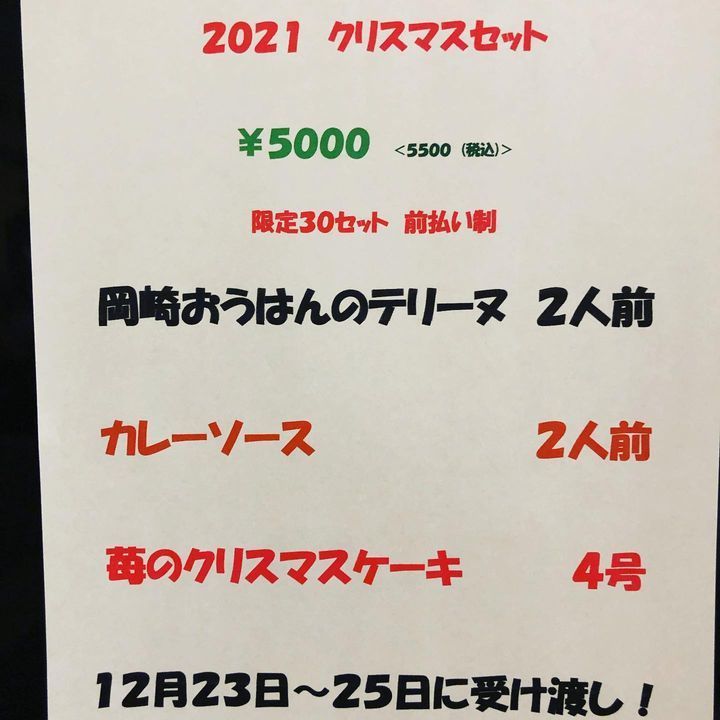 2021 クリスマスセット
¥5000 <5500 (税込)>
限定30セット 前払い制
岡崎おうはんのテリーヌ 2人前
カレーソース 2人前
苺のクリスマスケーキ 4号
12月23日～25日に受け渡し！